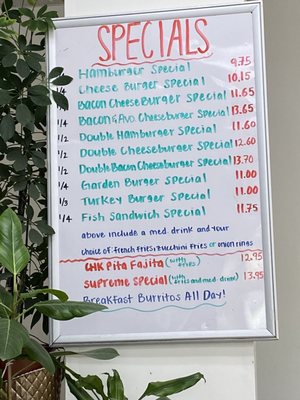 SPECIALS
Hamburger Special 9.75
Cheese Burger Special 10.15
Bacon Cheese Burger Special 11.65
1/4 Bacon & Avo. Cheeseburger Special 13.65
1/2 Double Hamburger Special 11.60
1/2 Double Cheeseburger Special 12.60
1/2 Double Bacon Cheeseburger Special 13.70
1/4 Garden Burger Special 11.00
1/3 Turkey Burger Special 11.00
1/4 Fish Sandwich Special 11.75
above include a med. drink and your
choice of: french fries, zucchini fries or onion rings
CHK Pita Fajita (with fries) 12.95
Supreme Special (with fries and med. drink) 13.95
Breakfast Burritos All Day!